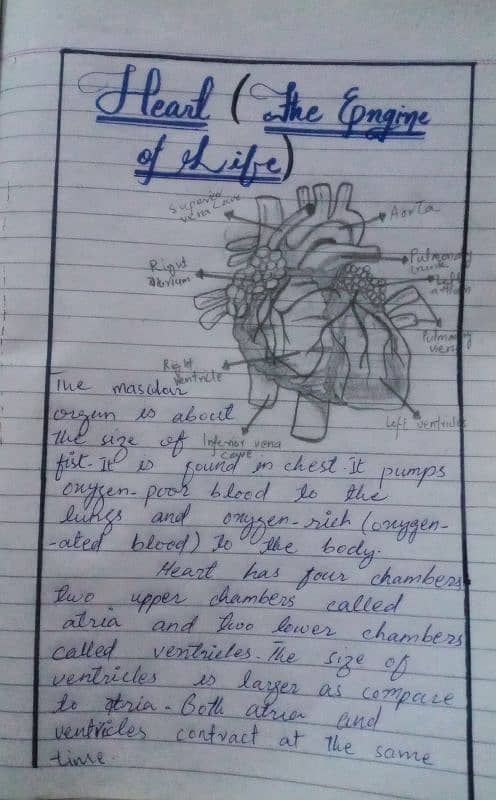 Heart (The Engine
of Life)
Superior
vena cava
Aorta
Pulmonary
trunk
Right
atrium
Left
atrium
Pulmonary
viens
Right
Ventricle
Left ventricles
Inferior vena
cave
The mascular
organ is about
the size of
fist. It is found in chest. It pumps
oxygen-poor blood to the
lungs and oxygen-rich (oxygen-
-ated blood) to the body.
Heart has four chambers,
two upper chambers called
atria and two lower chambers
called ventricles. The size of
ventricles is larger as compare
to atria. Both atria and
ventricles contract at the same
time.